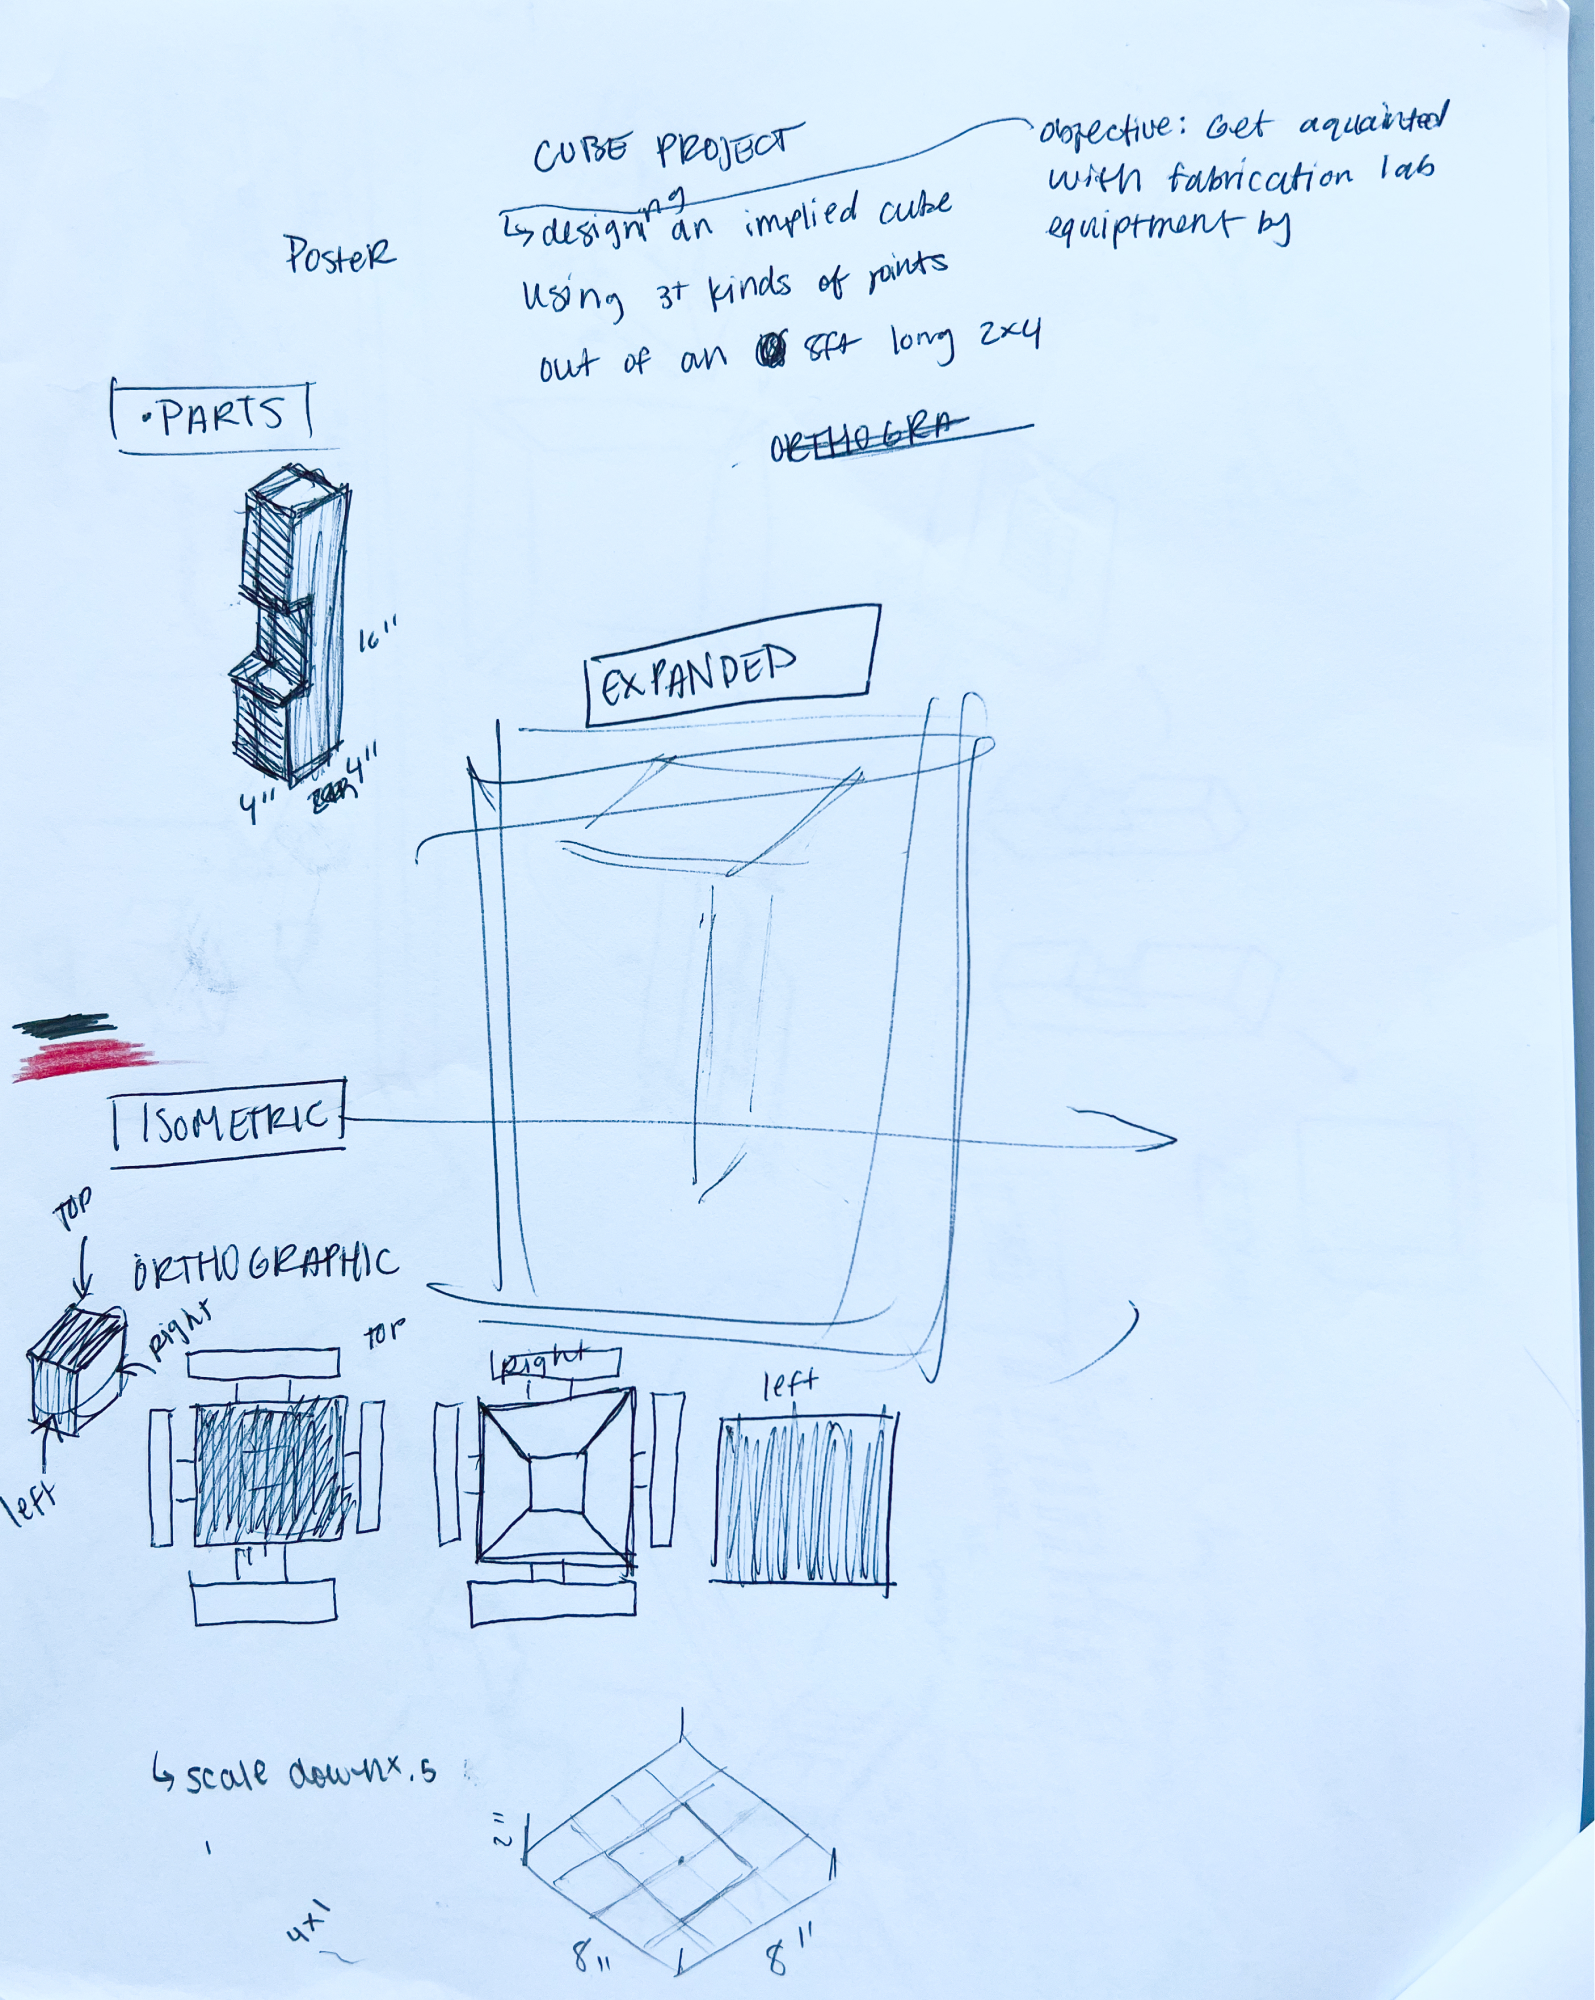 CUBE PROJECT
objective: Get aquainted
with fabrication lab
equiptment by
↳ designing an implied cube
using 3+ kinds of joints
out of an 8ft long 2x4
POSTER
ORTHOGRA
• PARTS
16"
4"
4"
EXPANDED
ISOMETRIC
TOP
ORTHOGRAPHIC
right
left
top
right
left
↳ scale down x.5
2"
8"
8"
4x1